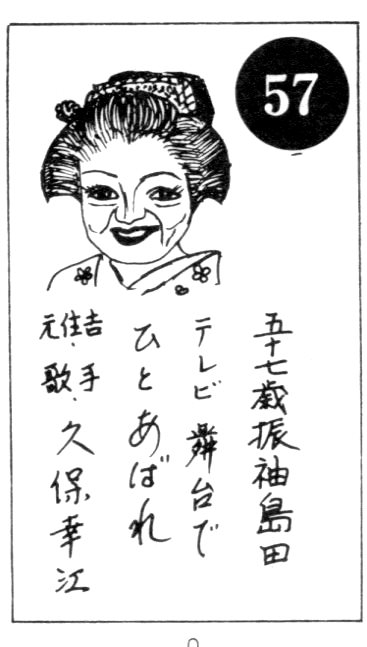 57
五十七歳振袖島田
テレビ舞台で
ひとあばれ
元・歌手
久保幸江